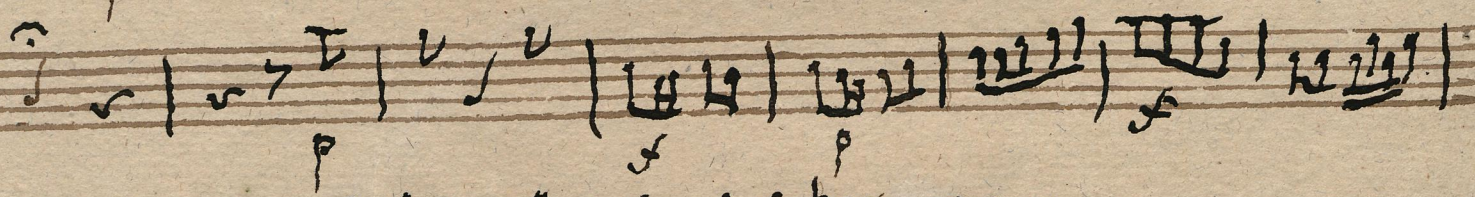 p f p f